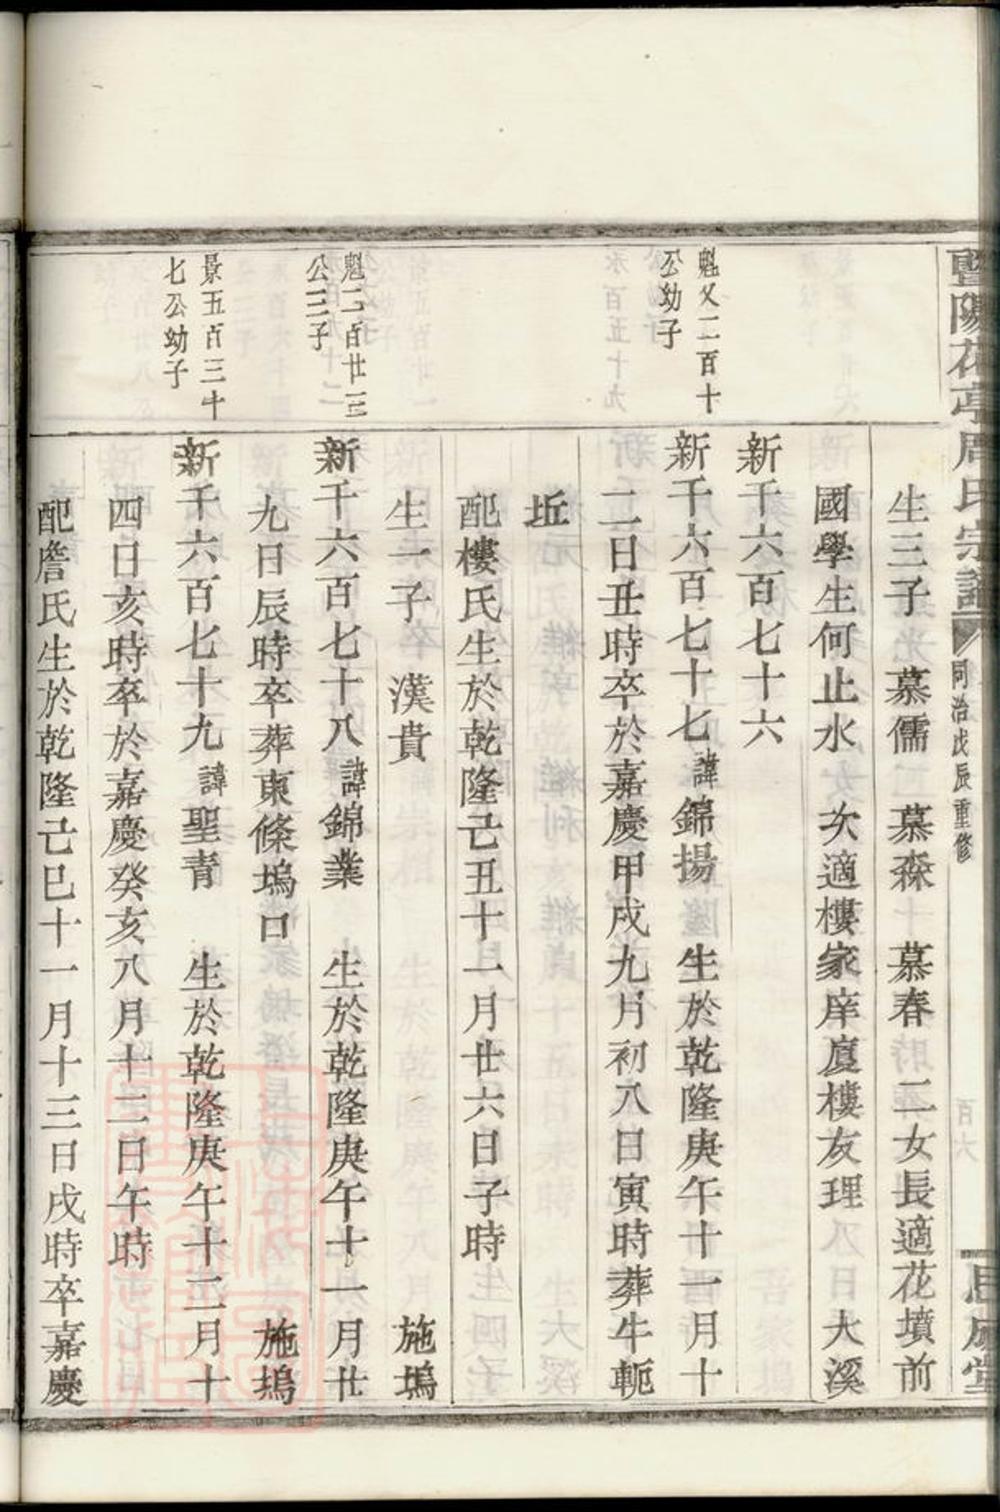 暨陽花亭周氏宗譜
同治戊辰重修
百六
生三子 慕儒 慕森 慕春 二女長適花墳前
國學生何止水 次適樓家庠廈樓友理 大溪
新千六百七十六
魁乂二百十
公幼子
新千六百七十七諱錦揚 生於乾隆庚午十一月十
二日丑時卒於嘉慶甲戌九月初八日寅時葬牛軛
坵
配樓氏生於乾隆己丑十一月廿六日子時
生一子 漢貴 施塢
魁二百廿三
公三子
新千六百七十八諱錦業 生於乾隆庚午十一月廿
九日辰時卒葬東條塢口 施塢
景五百三十
七公幼子
新千六百七十九諱聖青 生於乾隆庚午十二月十
四日亥時卒於嘉慶癸亥八月十二日午時
配詹氏生於乾隆己巳十一月十三日戌時卒嘉慶